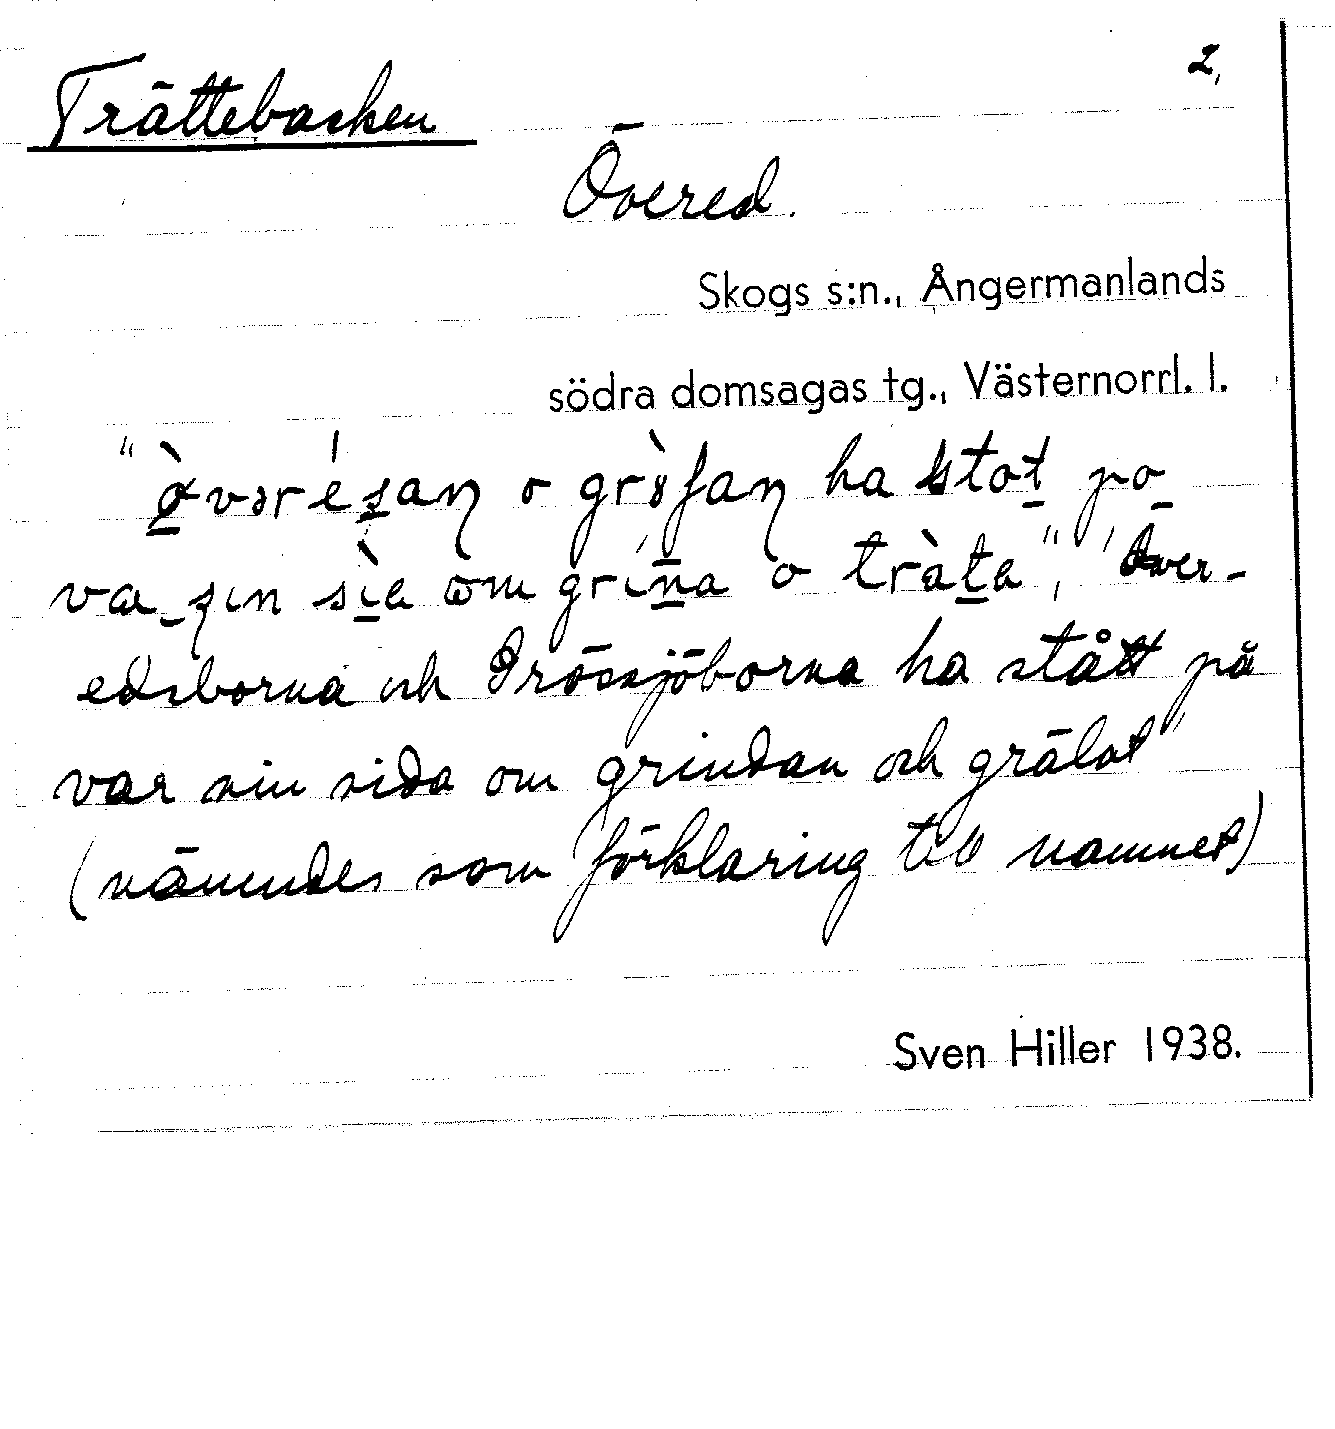 Trättebacken
2,
Övered.
Skogs s:n., Ångermanlands
södra domsagas tg., Västernorrl. l.
o ha po
va sın om o
", "Över-
edsborna och Drössjöborna ha stått på
var sin sida om grindan och grälat"
(nämndes som förklaring till namnet)
Sven Hiller 1938.